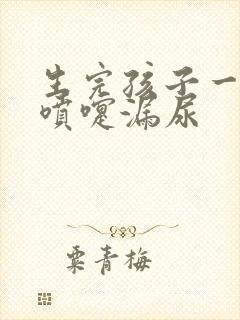 生完孩子一
喷嚏漏尿
粟青梅